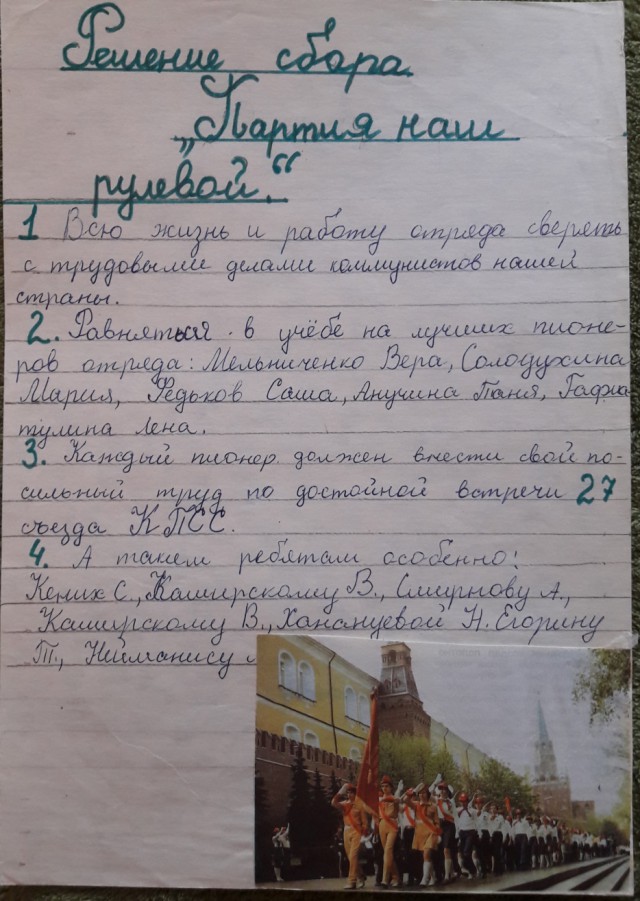 Решение сбора
„Партия наш
рулевой.“
1 Всю жизнь и работу отряда сверять
с трудовыми делами коммунистов нашей
страны.
2. Равняться в учёбе на лучших пионе-
ров отряда: Мельниченко Вера, Солодухина
Мария, Федьков Саша, Анучина Таня, Гафиа
тулина Лена.
3. Каждый пионер должен внести свой по-
сильный труд по достойной встречи 27
съезда КПСС.
4. А таким ребятам особенно:
Кених С., Каширскому В., Смирнову А.,
Каширскому В., Ханануевой Н. Егорину
Т., Нийманису